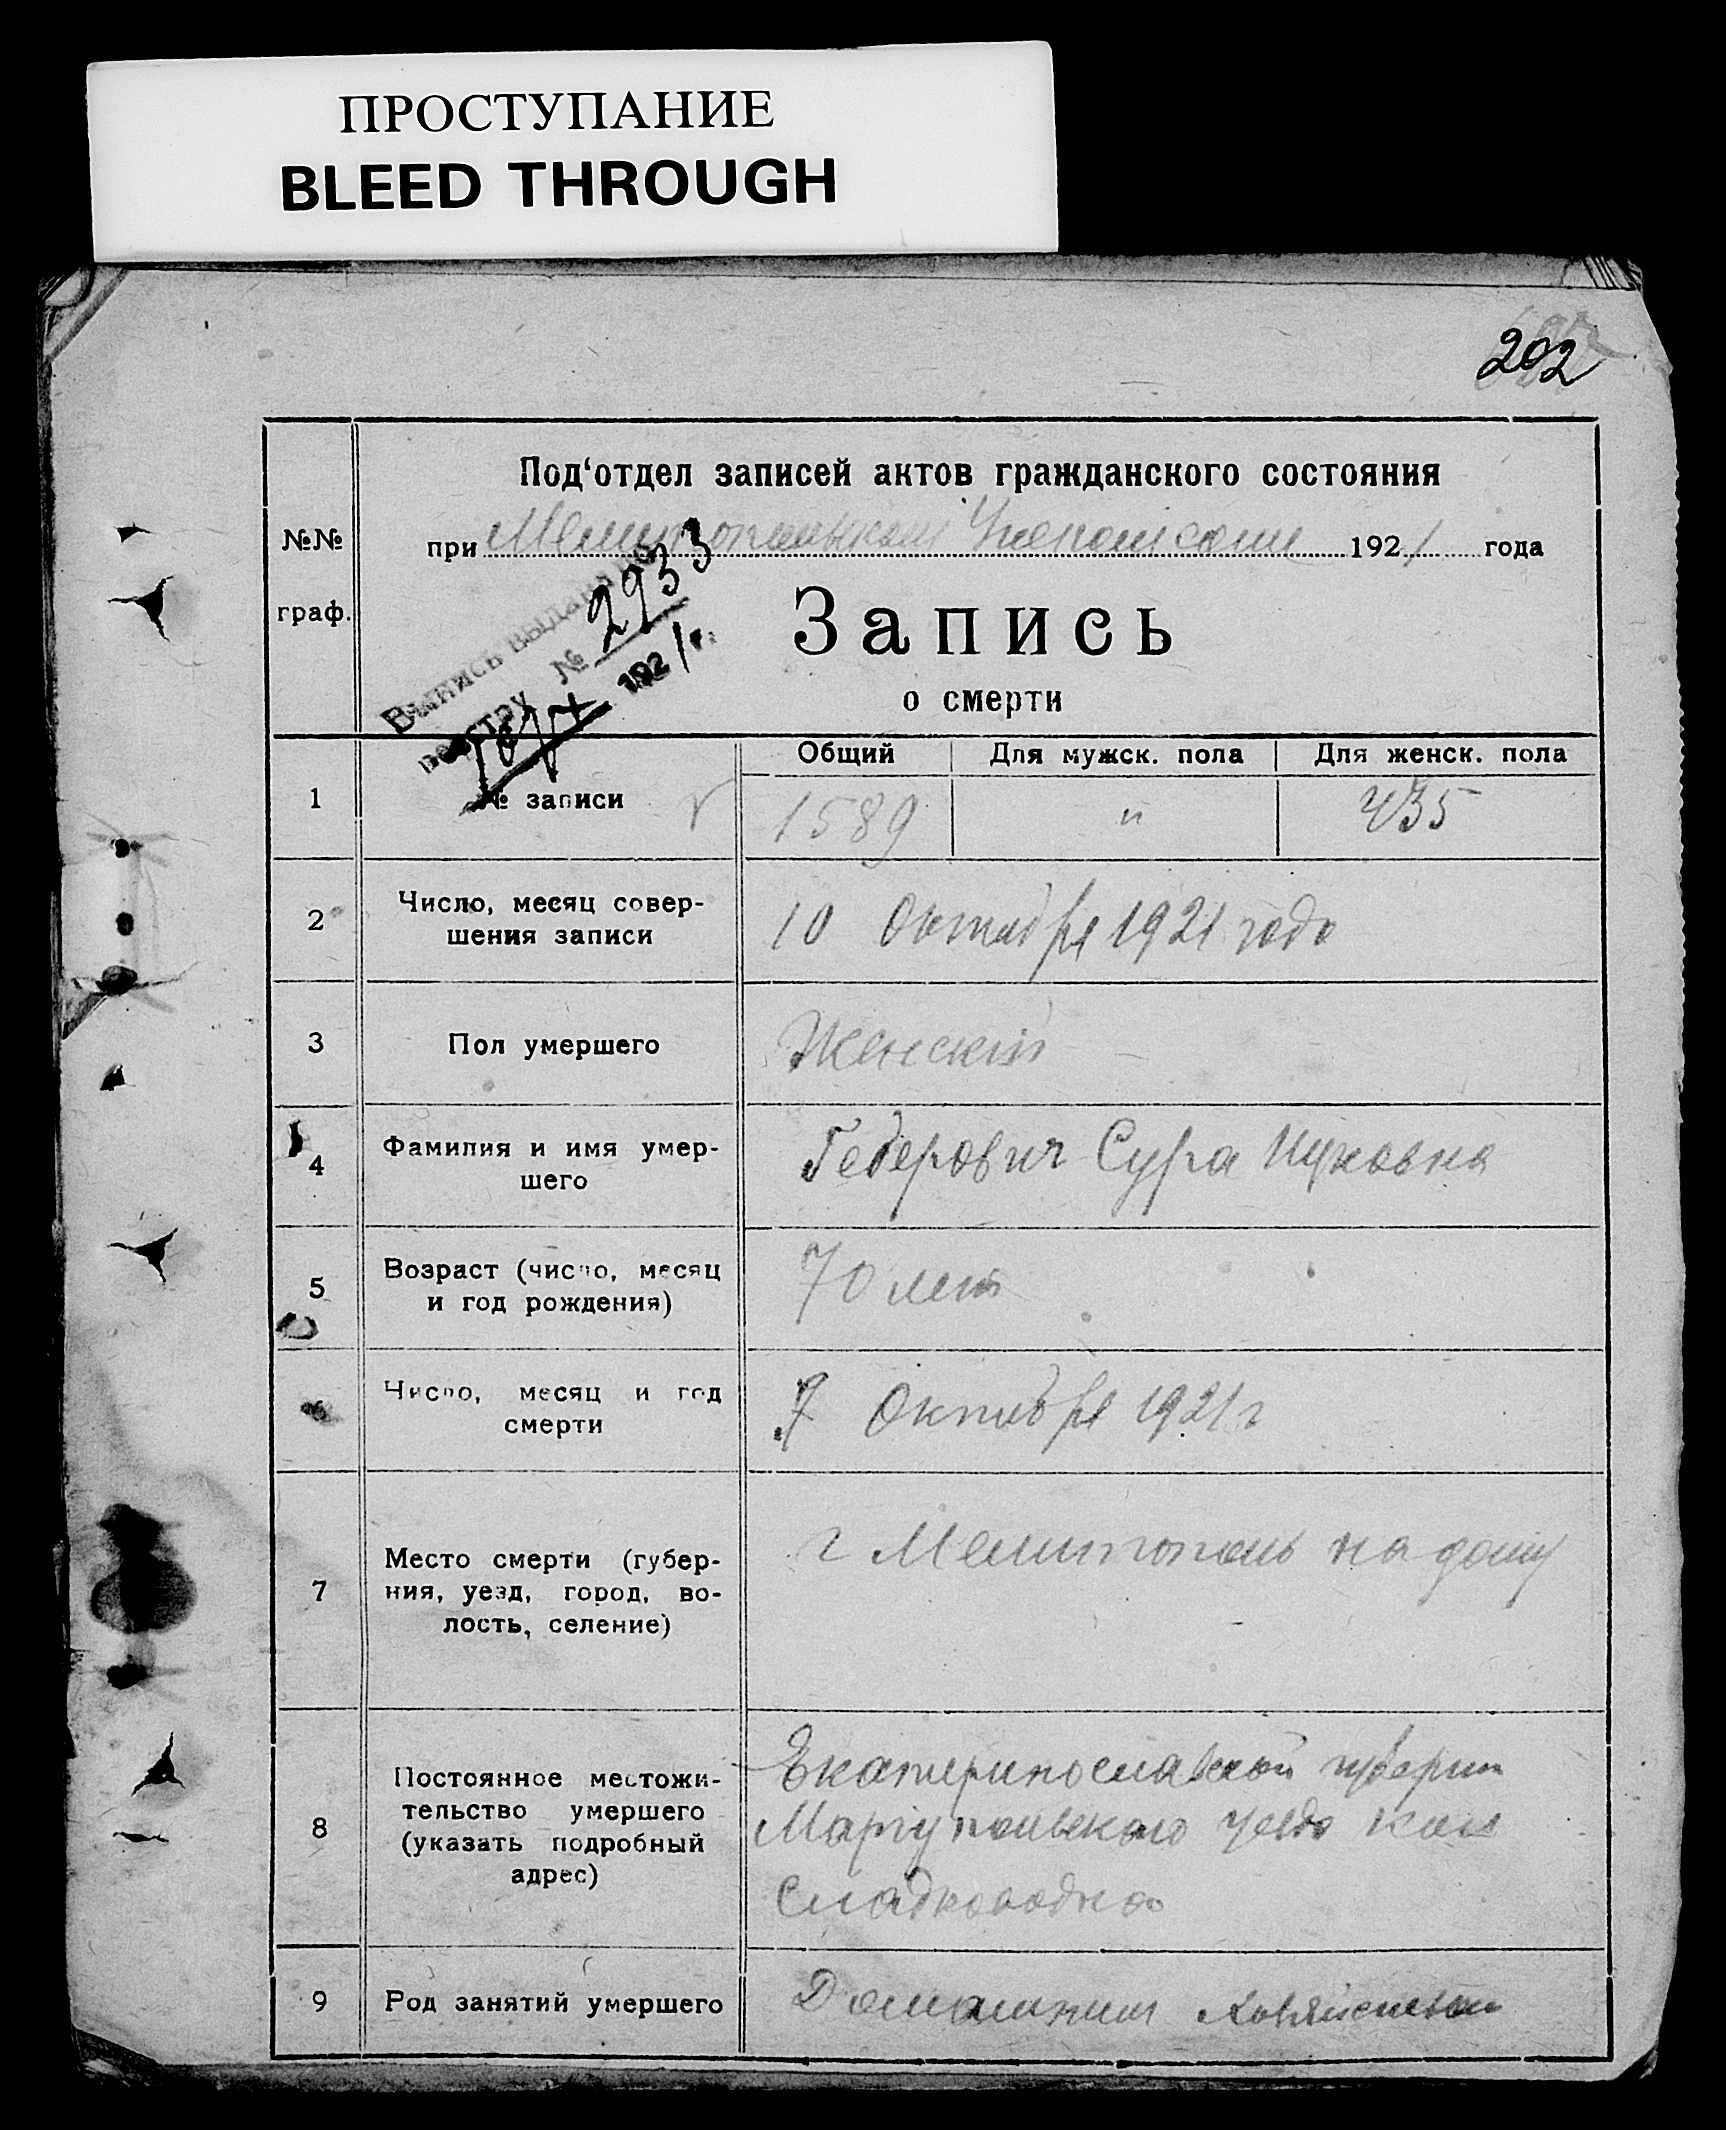 ПРОСТУПАНИЕ
BLEED THROUGH
202
Под‘отдел записей актов гражданского состояния
№№ граф.
при Мелитопольском 1921 года
Запись
о смерти
Выпись выдана по
реестру № 2933
10/X 1921 г.
Общий Для мужск. пола Для женск. пола
1 № записи 1589 " 735
2 Число, месяц совер-
шения записи
10 Октября 1921 года
3 Пол умершего Женский
4 Фамилия и имя умер-
шего
Сура
5 Возраст (число, месяц
и год рождения)
70 лет
6 Число, месяц и год
смерти
Октября 1921 г
7 Место смерти (губер-
ния, уезд, город, во-
лость, селение)
г Мелитополь на дому
8 Постоянное местожи-
тельство умершего
(указать подробный
адрес)
Екатеринославской губернии
Мариупольского уезда кол
Сладководка
9 Род занятий умершего Домашним хозяйством